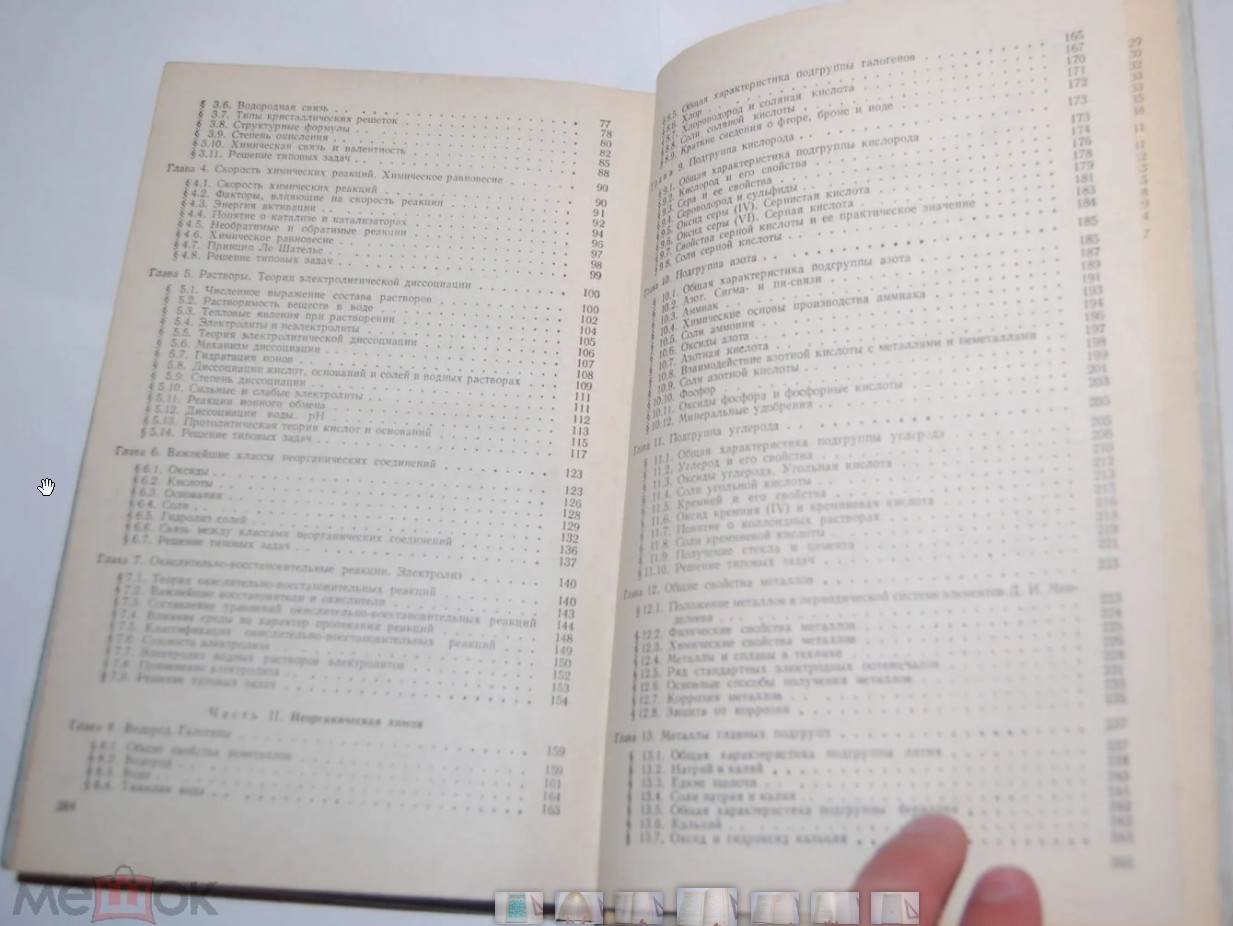 § 3.6. Водородная связь . . . 77
§ 3.7. Типы кристаллических решеток . . . 78
§ 3.8. Структурные формулы . . . 80
§ 3.9. Степень окисления . . . 82
§ 3.10. Химическая связь и валентность . . . 85
§ 3.11. Решение типовых задач . . . 88
Глава 4. Скорость химических реакций. Химическое равновесие . . . 90
§ 4.1. Скорость химических реакций . . . 90
§ 4.2. Факторы, влияющие на скорость реакции . . . 91
§ 4.3. Энергия активации . . . 92
§ 4.4. Понятие о катализе и катализаторах . . . 94
§ 4.5. Необратимые и обратимые реакции . . . 96
§ 4.6. Химическое равновесие . . . 97
§ 4.7. Принцип Ле Шателье . . . 98
§ 4.8. Решение типовых задач . . . 99
Глава 5. Растворы. Теория электролитической диссоциации . . . 100
§ 5.1. Численное выражение состава растворов . . . 100
§ 5.2. Растворимость веществ в воде . . . 102
§ 5.3. Тепловые явления при растворении . . . 104
§ 5.4. Электролиты и неэлектролиты . . . 105
§ 5.5. Теория электролитической диссоциации . . . 106
§ 5.6. Механизм диссоциации . . . 107
§ 5.7. Гидратация ионов . . . 108
§ 5.8. Диссоциация кислот, оснований и солей в водных растворах . . . 109
§ 5.9. Степень диссоциации . . . 111
§ 5.10. Сильные и слабые электролиты . . . 111
§ 5.11. Реакции ионного обмена . . . 112
§ 5.12. Диссоциация воды. pH . . . 113
§ 5.13. Протолитическая теория кислот и оснований . . . 115
§ 5.14. Решение типовых задач . . . 117
Глава 6. Важнейшие классы неорганических соединений . . . 123
§ 6.1. Оксиды . . . 123
§ 6.2. Кислоты . . . 126
§ 6.3. Основания . . . 128
§ 6.4. Соли . . . 129
§ 6.5. Гидролиз солей . . . 132
§ 6.6. Связь между классами неорганических соединений . . . 136
§ 6.7. Решение типовых задач . . . 137
Глава 7. Окислительно-восстановительные реакции. Электролиз . . . 140
§ 7.1. Теория окислительно-восстановительных реакций . . . 140
§ 7.2. Важнейшие восстановители и окислители . . . 143
§ 7.3. Составление уравнений окислительно-восстановительных реакций . . . 144
§ 7.4. Влияние среды на характер протекания реакций . . . 148
§ 7.5. Классификация окислительно-восстановительных реакций . . . 149
§ 7.6. Сущность электролиза . . . 150
§ 7.7. Электролиз водных растворов электролитов . . . 152
§ 7.8. Применение электролиза . . . 153
§ 7.9. Решение типовых задач . . . 154
Часть II. Неорганическая химия
Глава 8. Водород. Галогены . . . 159
§ 8.1. Общие свойства неметаллов . . . 159
§ 8.2. Водород . . . 161
§ 8.3. Вода . . . 164
§ 8.4. Тяжелая вода . . . 165
384
§ 8.5. Общая характеристика подгруппы галогенов . . . 165
§ 8.6. Хлор . . . 167
§ 8.7. Хлороводород и соляная кислота . . . 170
§ 8.8. Соли соляной кислоты . . . 171
§ 8.9. Краткие сведения о фторе, броме и иоде . . . 172
Глава 9. Подгруппа кислорода . . . 173
§ 9.1. Общая характеристика подгруппы кислорода . . . 173
§ 9.2. Кислород и его свойства . . . 174
§ 9.3. Сера и ее свойства . . . 176
§ 9.4. Сероводород и сульфиды . . . 178
§ 9.5. Оксид серы (IV). Сернистая кислота . . . 181
§ 9.6. Оксид серы (VI). Серная кислота . . . 183
§ 9.7. Свойства серной кислоты и ее практическое значение . . . 184
§ 9.8. Соли серной кислоты . . . 185
Глава 10. Подгруппа азота . . . 185
§ 10.1. Общая характеристика подгруппы азота . . . 187
§ 10.2. Азот. Сигма- и пи-связи . . . 189
§ 10.3. Аммиак . . . 191
§ 10.4. Химические основы производства аммиака . . . 193
§ 10.5. Соли аммония . . . 194
§ 10.6. Оксиды азота . . . 195
§ 10.7. Азотная кислота . . . 197
§ 10.8. Взаимодействие азотной кислоты с металлами и неметаллами . . . 198
§ 10.9. Соли азотной кислоты . . . 199
§ 10.10. Фосфор . . . 201
§ 10.11. Оксиды фосфора и фосфорные кислоты . . . 203
§ 10.12. Минеральные удобрения . . . 205
Глава 11. Подгруппа углерода
§ 11.1. Общая характеристика подгруппы углерода
§ 11.2. Углерод и его свойства
§ 11.3. Оксиды углерода. Угольная кислота
§ 11.4. Соли угольной кислоты
§ 11.5. Кремний и его свойства
§ 11.6. Оксид кремния (IV) и кремниевая кислота
§ 11.7. Понятие о коллоидных растворах
§ 11.8. Соли кремниевой кислоты
§ 11.9. Получение стекла и цемента
§ 11.10. Решение типовых задач
Глава 12. Общие свойства металлов
§ 12.1. Положение металлов в периодической системе элементов Д. И. Мен-
делеева
§ 12.2. Физические свойства металлов
§ 12.3. Химические свойства металлов
§ 12.4. Металлы и сплавы в технике
§ 12.5. Ряд стандартных электродных потенциалов
§ 12.6. Основные способы получения металлов
§ 12.7. Коррозия металлов
§ 12.8. Защита от коррозии
Глава 13. Металлы главных подгрупп
§ 13.1. Общая характеристика подгруппы лития
§ 13.2. Натрий и калий
§ 13.3. Едкие щелочи
§ 13.4. Соли натрия и калия
§ 13.5. Общая характеристика подгруппы бериллия
§ 13.6. Кальций
§ 13.7. Оксид и гидроксид кальция
мешок